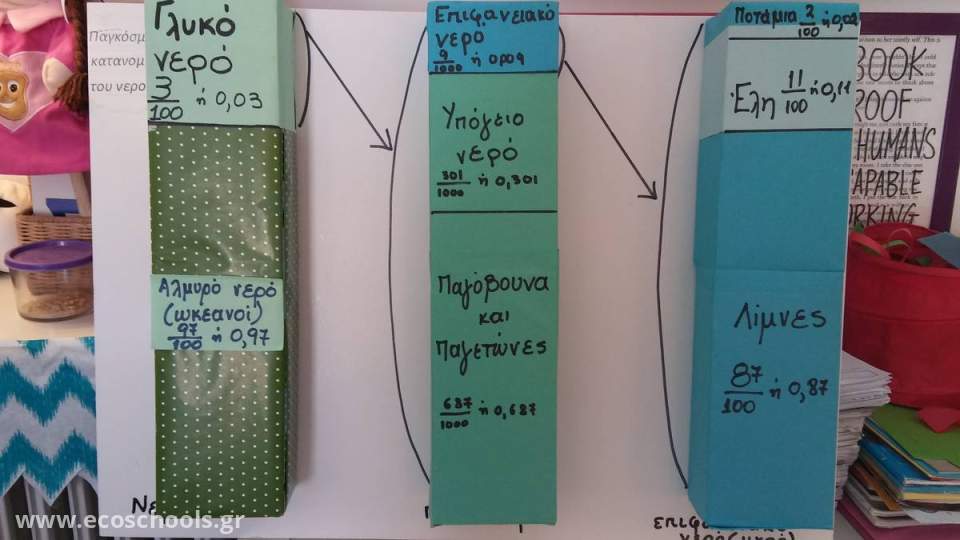 Γλυκό
νερό
3/100 ή 0,03
Αλμυρό νερό
(ωκεανοί)
97/100 ή 0,97
Επιφανειακό
νερό
9/1000 ή 0,009
Υπόγειο
νερό
301/1000 ή 0,301
Παγόβουνα
και
Παγετώνες
687/1000 ή 0,687
Ποτάμια 2/100 ή 0,02
Έλη 11/100 ή 0,11
Λίμνες
87/100 ή 0,87
κατανομ
του νερο
BOOK
ROOF
HUMANS
APABLE
RKING
www.ecoschools.gr